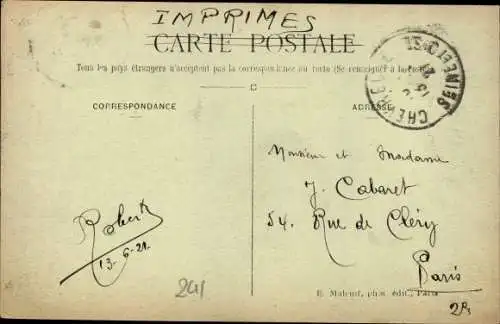 IMPRIMES
CARTE POSTALE
Tous les pays étrangers n'acceptent pas la correspondance au recto (Se renseigner à la
CORRESPONDANCE
ADRESSE
CHEVREUSE
SEINE ET OISE
Monsieur et Madame
J. Cabaret
54. Rue de Cléry
Paris
Robert
13-6-21
241
E. Malcuit, phot. édit., Paris